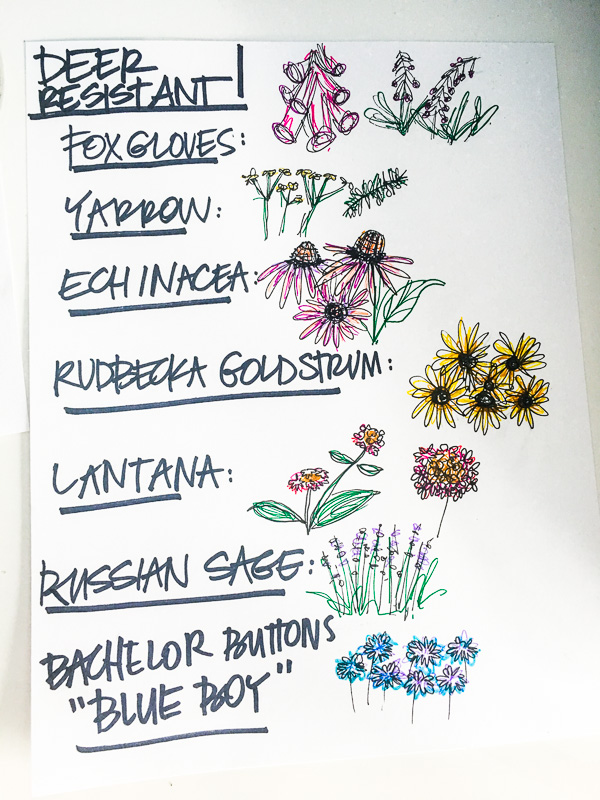 DEER
RESISTANT!
FOXGLOVES:
YARROW:
ECHINACEA:
RUDBECKA GOLDSTRUM:
LANTANA:
RUSSIAN SAGE:
BACHELOR BUTTONS
"BLUE BOY"